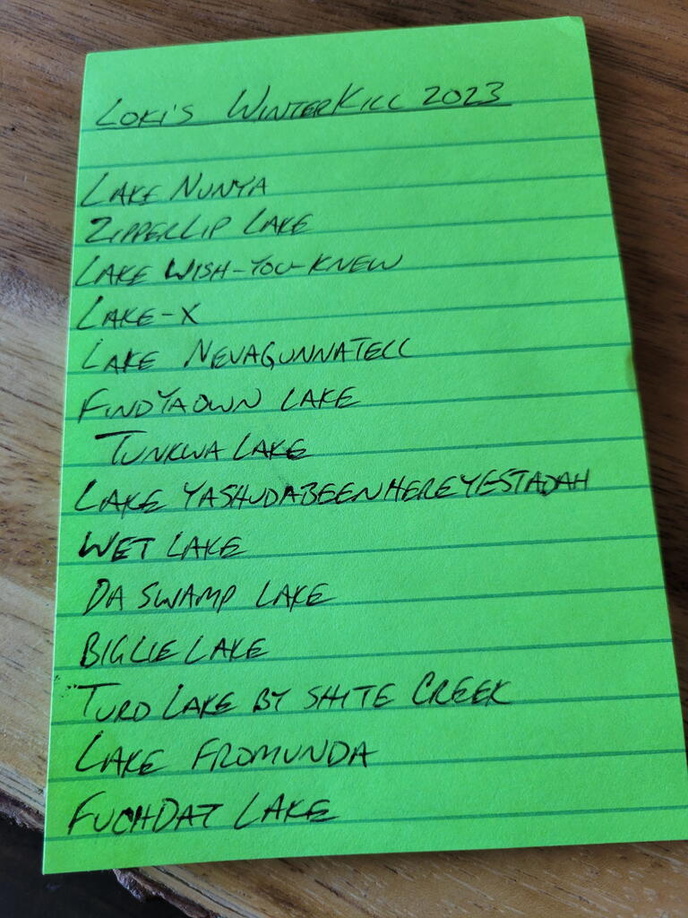 LOKI'S WINTERKILL 2023
LAKE NUNYA
ZIPPERLIP LAKE
LAKE WISH-YOU-KNEW
LAKE-X
LAKE NEVAGUNNATELL
FINDYAOWN LAKE
TUNKWA LAKE
LAKE YASHUDABEENHEREYESTADAH
WET LAKE
DA SWAMP LAKE
BIGLIE LAKE
TURD LAKE BY SHITE CREEK
LAKE FROMUNDA
FUCHDAT LAKE